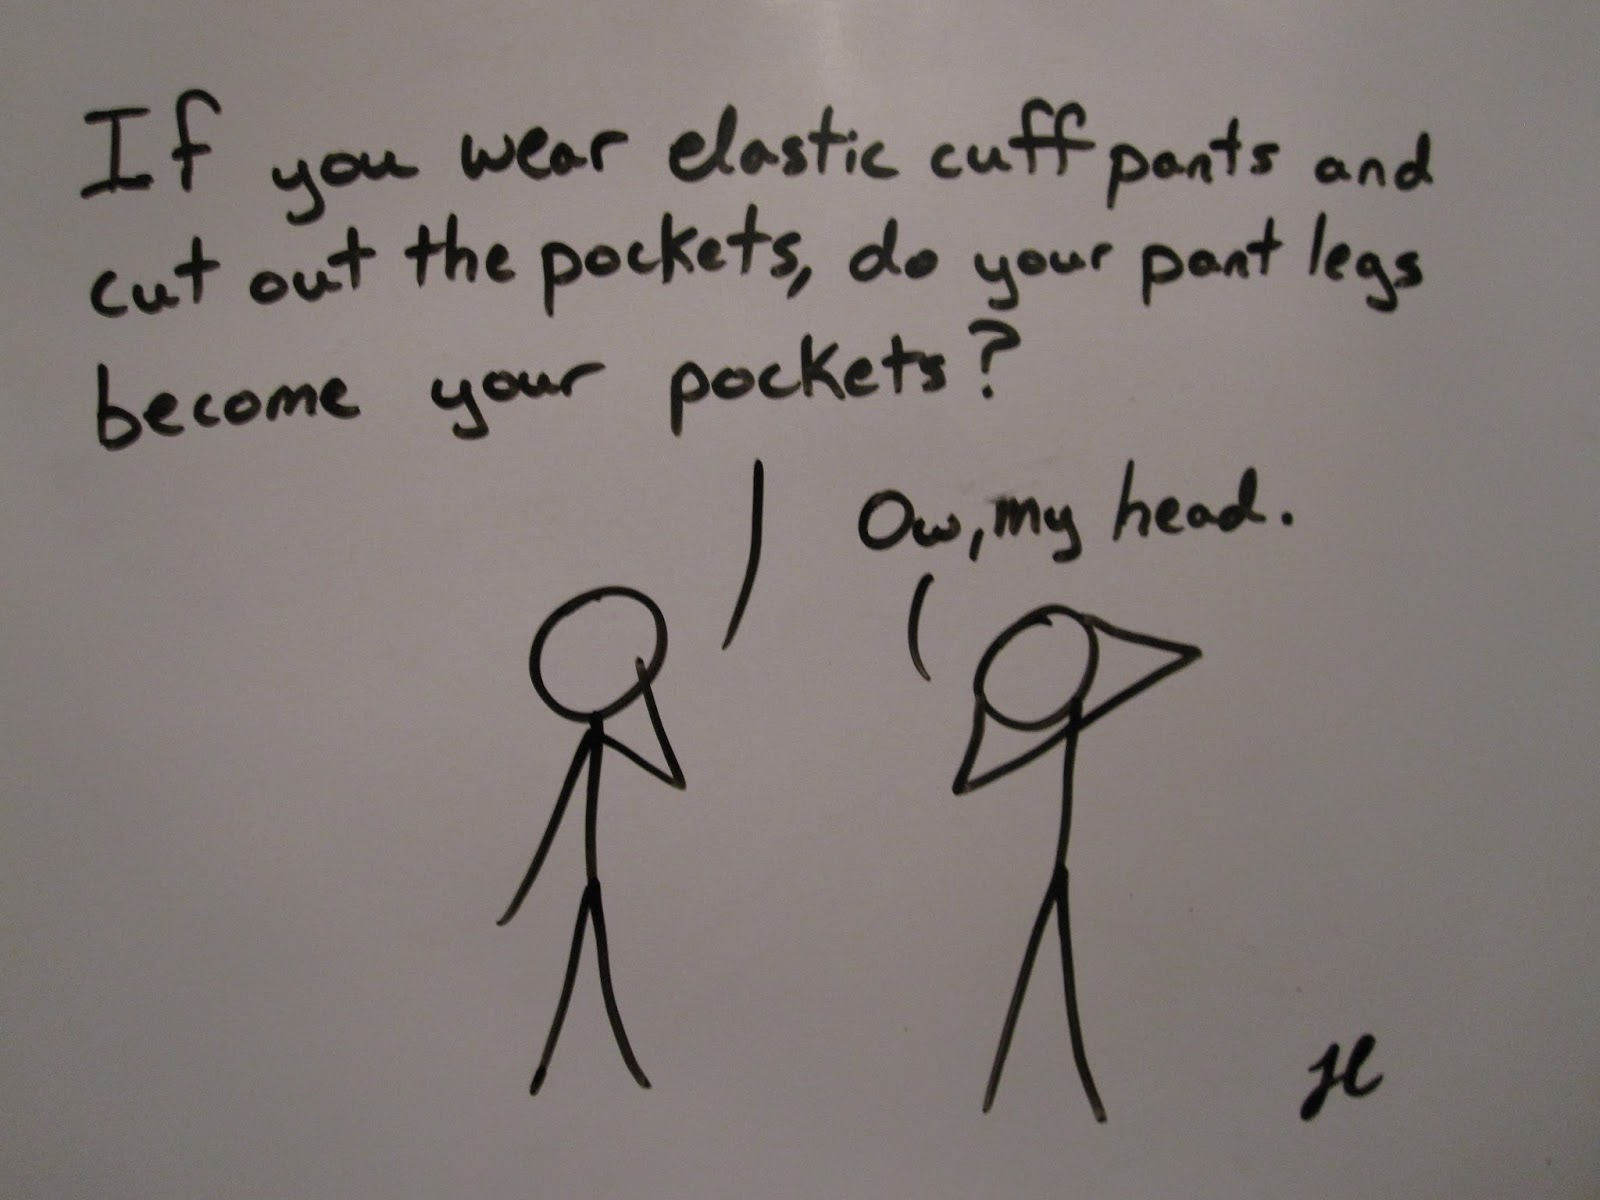 If you wear elastic cuff pants and
cut out the pockets, do your pant legs
become your pockets?
Ow, my head.
JC